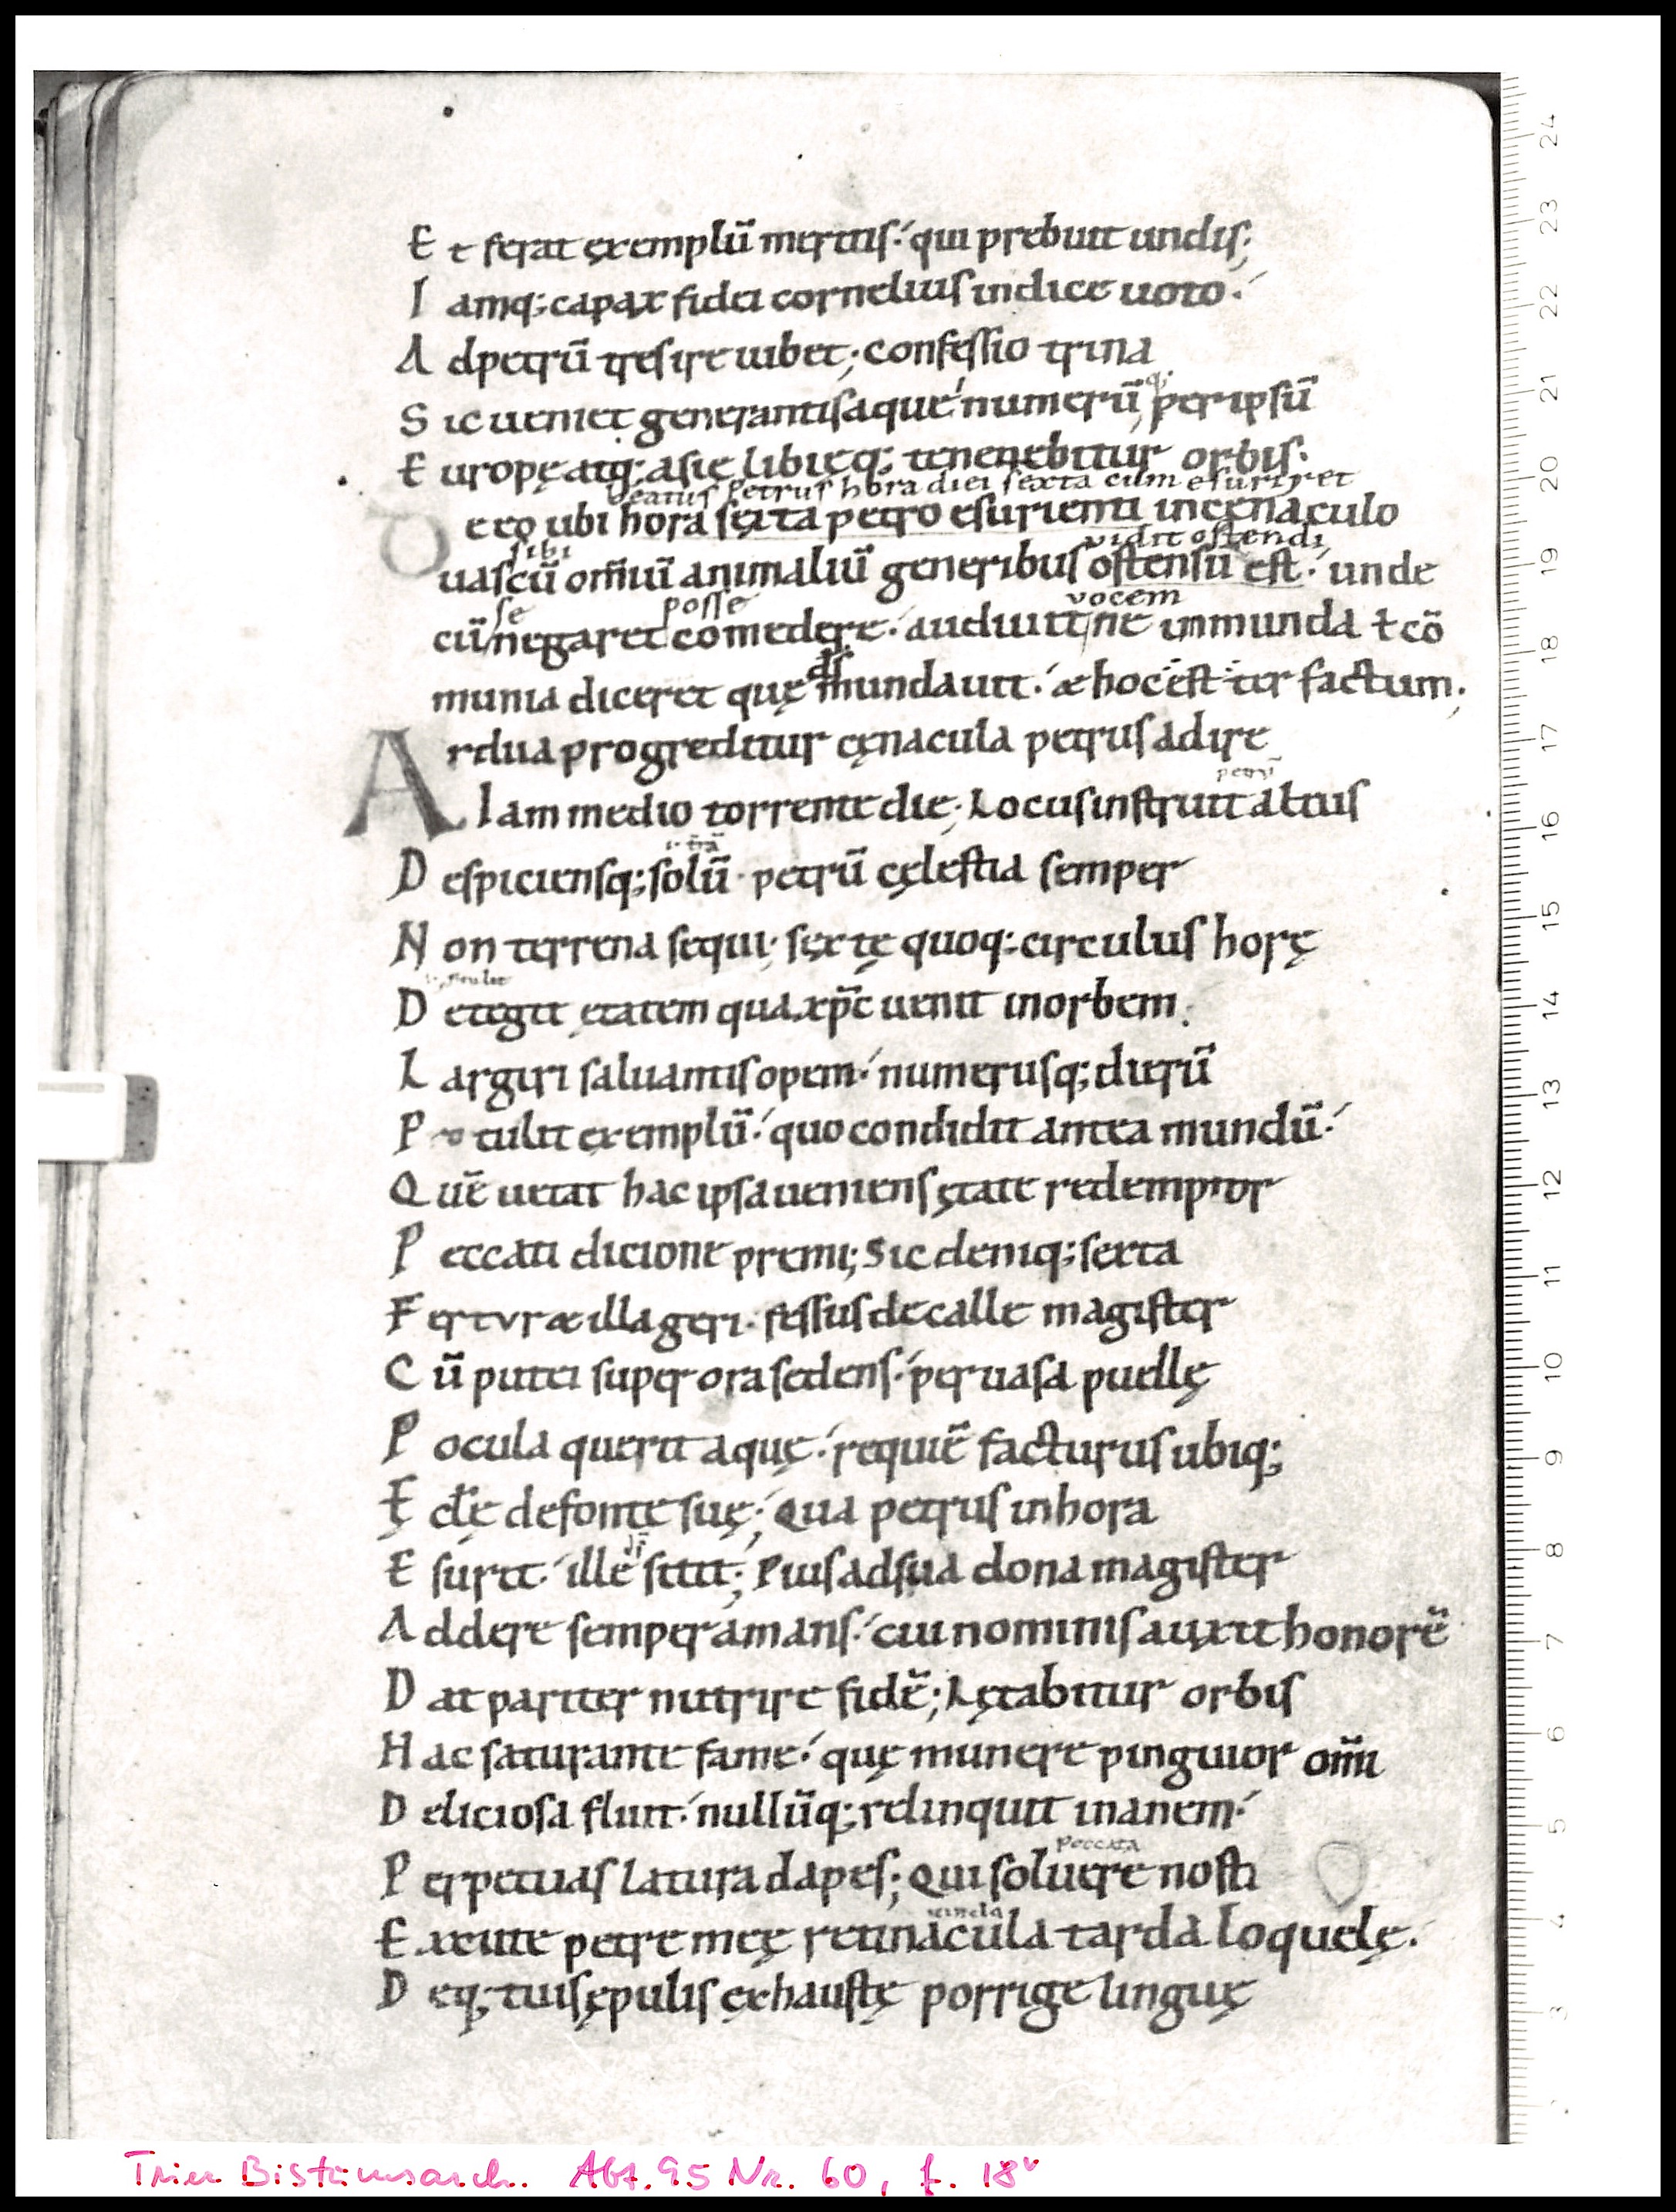 E t ferat exemplū mentis· qui prebuit undis;
I amq; capax fidei cornelius indice uoto·
A dpetrū tres ire iubet; confessio trina
S ic ueniet generantis aquę numerū, q; per ipsū
E uropę atq; asię libięq; tenenebitur orbis·
beatus Petrus hora diei sexta cum esuriret
D e eo ubi hora sexta petro esurienti incenaculo
sibi vidit ostendi
uascū om̄iū animaliū generibus ostensū est· unde
se posse vocem
cū negaret comedere· audiuit ne inmunda ł cō
ds
munia diceret quę mundauit· & hoc est ter factum;
A rdua progreditur cęnacula petrus adire
petrū
I am medio torrente die; Locus instruit altus
i· trā
D espiciensq; solū· petrū cęlestia semper
N on terrena sequi; sextę quoq; circulus horę
D etegit ętatem qua xp̄c uenit inorbem;
L argiri saluantis opem· numerusq; dierū
P ro tulit exemplū· quo condidit antea mundū·
Q uē uetat hac ipsa ueniens ętate redemptor
P eccati dicione premi; Sic deniq; sexta
F ertvr & illa geri· fessus decalle magister
C ū putei super ora sedens· per uasa puellę
P ocula querit aquę· requiē facturus ubiq;
Ę cłę defonte suę; Qua petrus inhora
E surit· ille sitit; Pius ad sua dona magister
A ddere semper amans· cui nominis auxit honorē
D at pariter nutrire fidē; Lętabitur orbis
H ac saturante fame· quę munere pinguior om̄i
D eliciosa fluit· nullūq; relinquit inanem·
peccata
P erpetuas latura dapes; Qui soluere nosti
uincla
E xeute petre meę retinacula tarda loquelę·
D eq; tuis ępulis exhaustę porrige linguę
24
23
22
21
20
19
18
17
16
15
14
13
12
11
10
9
8
7
6
5
4
3
Trier Bistumsarch. Abt. 95 Nr. 60, f. 18v